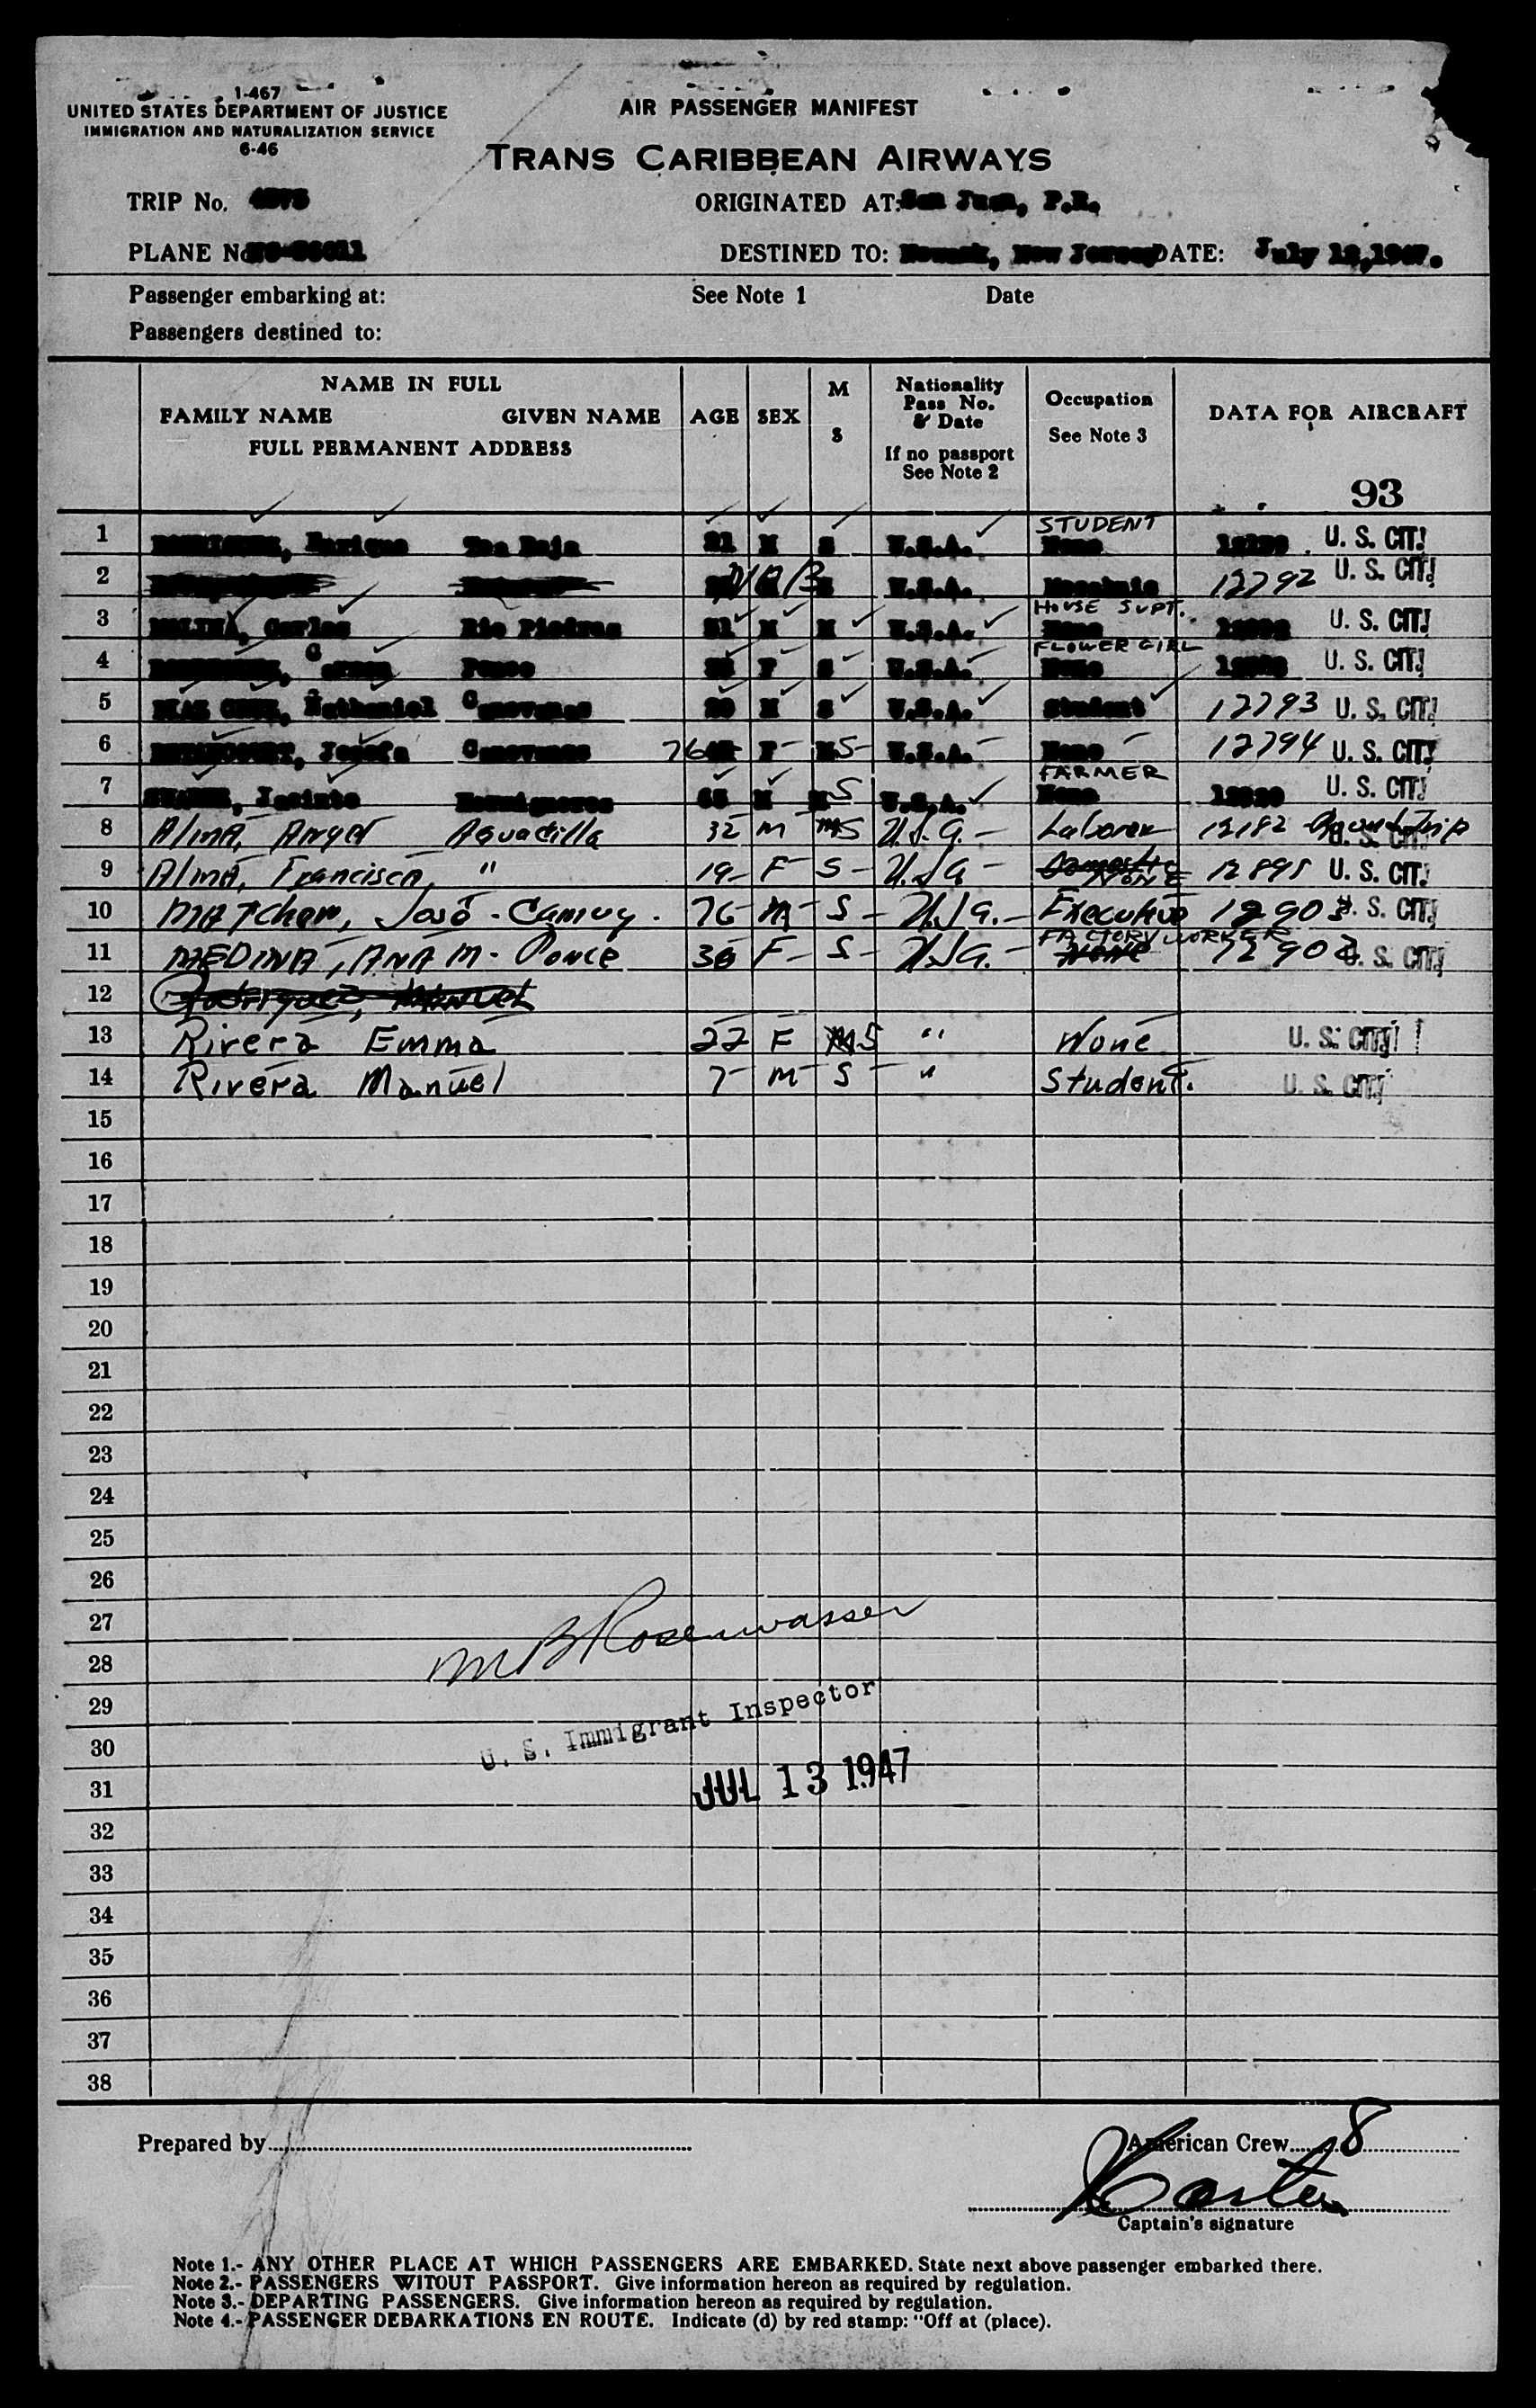 I-467
UNITED STATES DEPARTMENT OF JUSTICE
IMMIGRATION AND NATURALIZATION SERVICE
6-46
AIR PASSENGER MANIFEST
TRANS CARIBBEAN AIRWAYS
TRIP No. ORIGINATED AT: San Juan, P.R.
PLANE No. DESTINED TO: Newark, New Jersey DATE: July 1947.
Passenger embarking at: See Note 1 Date
Passengers destined to:
NAME IN FULL
FAMILY NAME GIVEN NAME
FULL PERMANENT ADDRESS
AGE SEX M S
Nationality Pass No. & Date If no passport See Note 2
Occupation See Note 3
DATA FOR AIRCRAFT
93
STUDENT
1 Enrique Toa Baja 21 M S U.S.A. None U. S. CIT.
2 U.S.A. 12792 U. S. CIT.
HOUSE SUPT.
3 MOLINA, Carlos Rio Piedras M M U.S.A. None U. S. CIT.
FLOWER GIRL
4 Carmen Ponce F S U.S.A. None U. S. CIT.
5 DIAZ CRUZ, Nathaniel Canovanas 20 M S U.S.A. Student 12793 U. S. CIT.
6 Josefa Canovanas 76 F S U.S.A. None 12794 U. S. CIT.
FARMER
7 Jacinto Hormigueros 65 M S U.S.A. None U. S. CIT.
8 Alma, Angel Aguadilla 32 M S U.S.A. Laborer 12182 Round Trip U. S. CIT.
9 Alma, Francisca, " 19 F S U.S.A. Domestic NONE 12895 U. S. CIT.
10 José - Camuy. 76 M S U.S.A. Executive U. S. CIT.
FACTORY WORKER
11 MEDINA, ANA M - Ponce 36 F S U.S.A. None 12902 U. S. CIT.
12 Rodriguez, Manuel
13 Rivera Emma 22 F S " None U. S. CIT.
14 Rivera Manuel 7 M S " Student. U. S. CIT.
15
16
17
18
19
20
21
22
23
24
25
26
27
28
29
30
31
32
33
34
35
36
37
38
M B Rosenwasser
U. S. Immigrant Inspector
JUL 13 1947
Prepared by American Crew 8
Captain's signature
Note 1.- ANY OTHER PLACE AT WHICH PASSENGERS ARE EMBARKED. State next above passenger embarked there.
Note 2.- PASSENGERS WITOUT PASSPORT. Give information hereon as required by regulation.
Note 3.- DEPARTING PASSENGERS. Give information hereon as required by regulation.
Note 4.- PASSENGER DEBARKATIONS EN ROUTE. Indicate (d) by red stamp: "Off at (place).